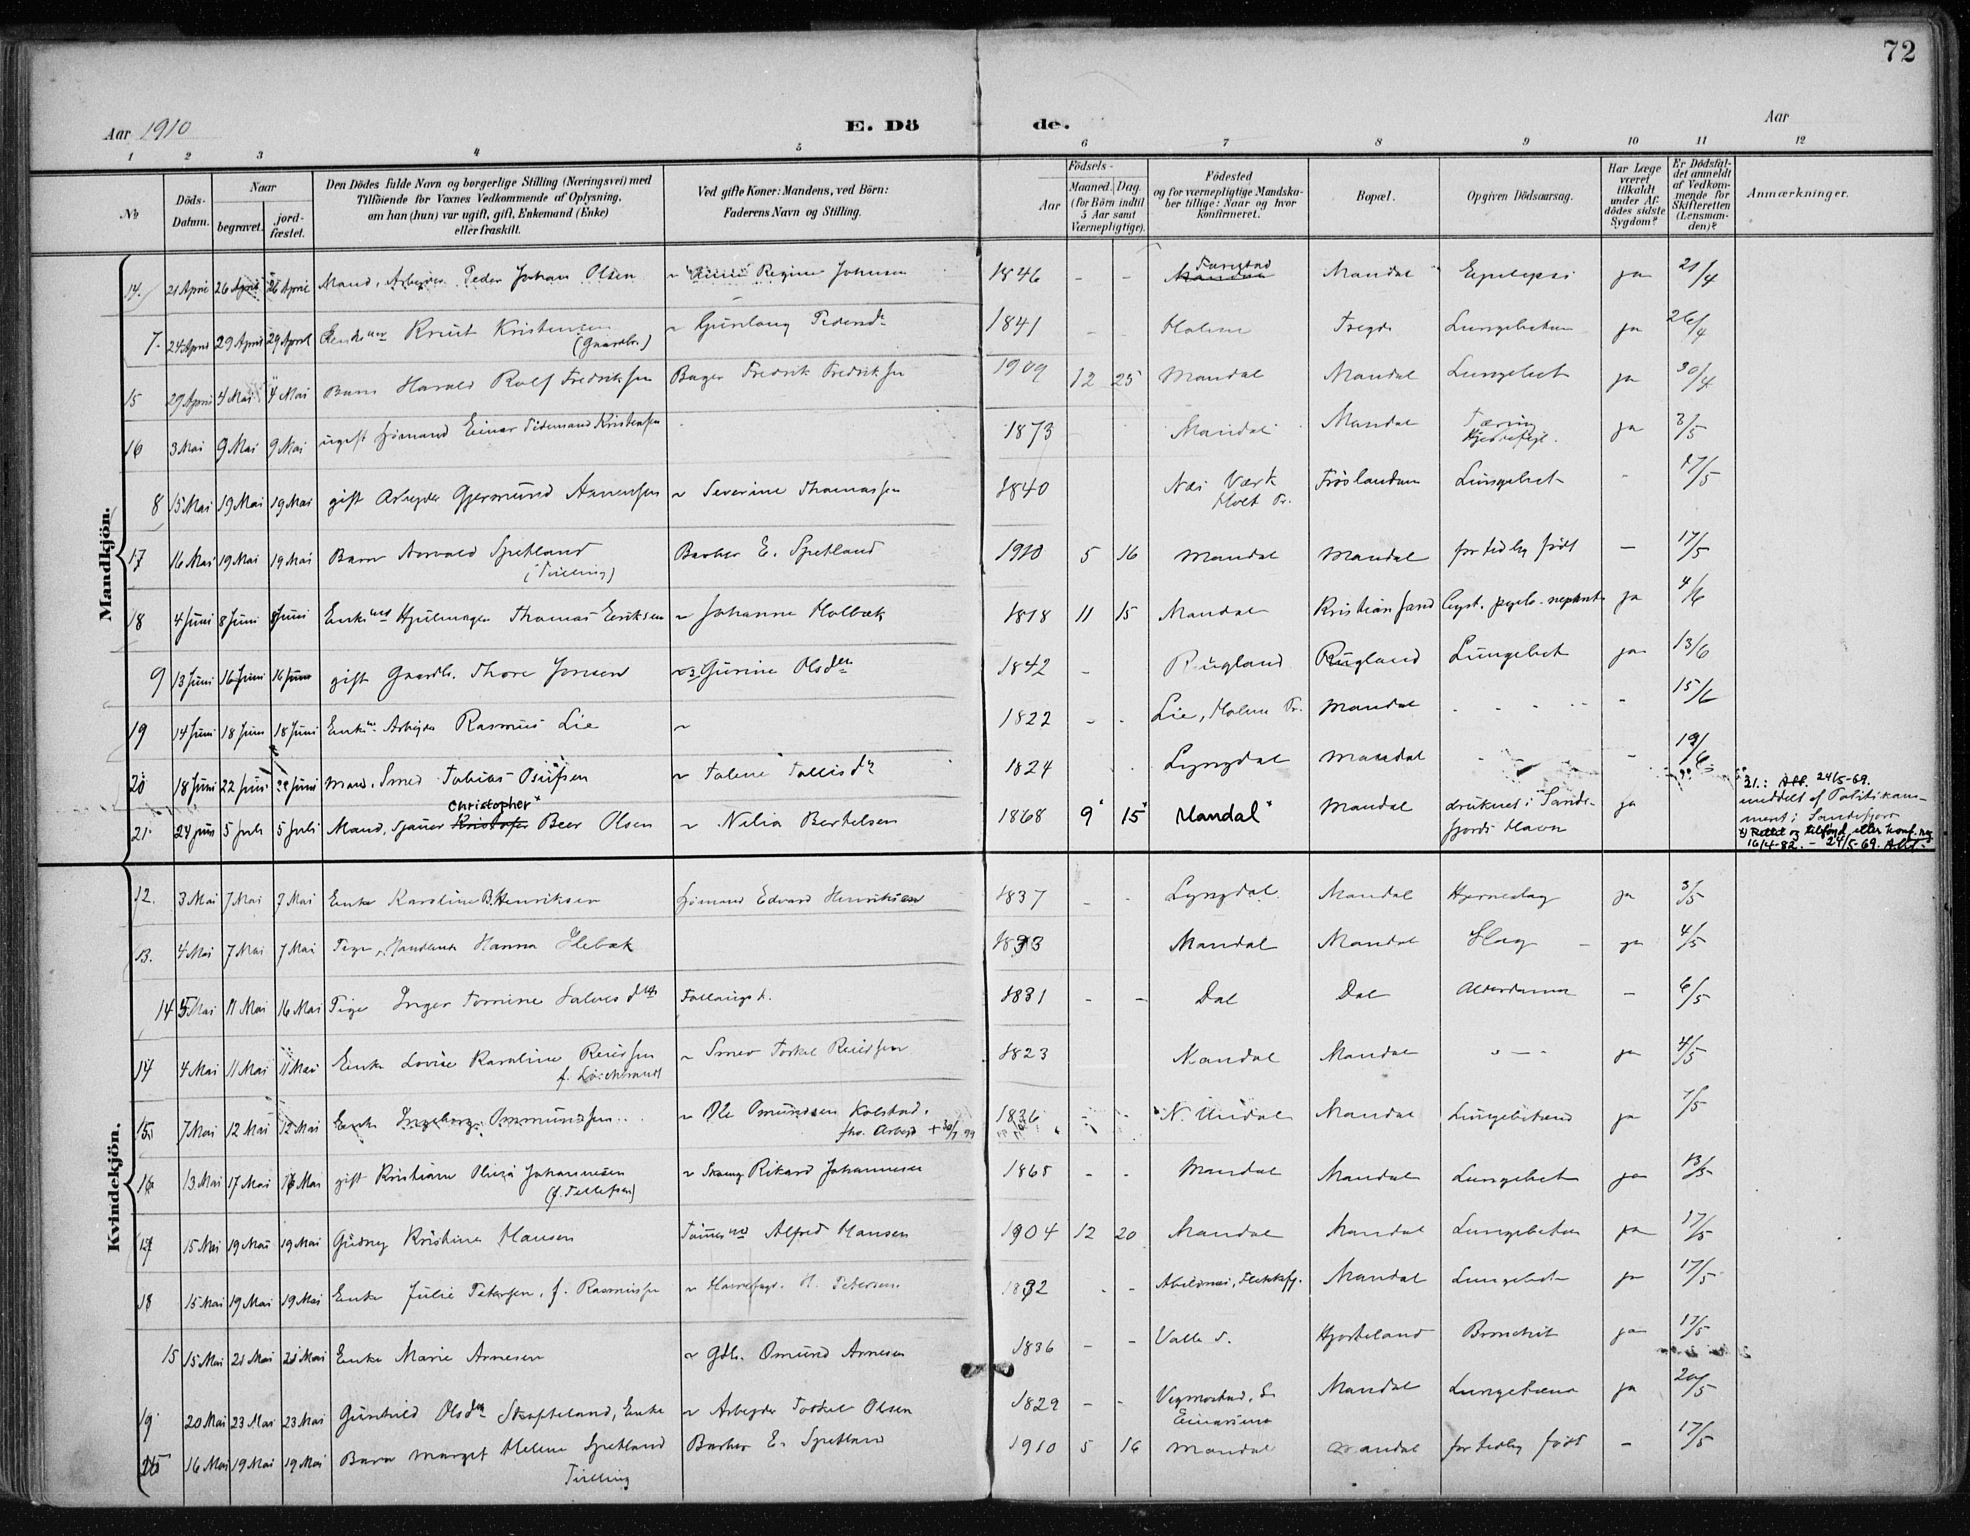 72
Aar 1910 E. Dö de. Aar
1 2 3 4 5 6 7 8 9 10 11 12
No
Döds-Datum.
Naar begravet. jordfæstet.
Den Dödes fulde Navn og borgerlige Stilling (Næringsvei) med Tilföiende for Voxnes Vedkommende af Oplysning, om han (hun) var ugift, gift, Enkemand (Enke) eller fraskilt.
Ved gifte Koner: Mandens, ved Börn: Faderens Navn og Stilling.
Födsels-
Aar Maaned. Dag. (for Börn indtil 5 Aar samt Værnepligtige).
Födested og for værnepligtige Mandskaber tillige: Naar og hvor konfirmeret.
Bopæl.
Opgiven Dödsaarsag.
Har Læge været tilkaldt under Afdødes sidste Sygdom?
Er Dödsfaldet anmeldt af Vedkommende for Skifteretten (Lensmanden)?
Anmærkninger.
Mandkjön.
14. 21 April 26 April 26 April Mand, Arbeider Peder Johan Olsen ~ Regine Johnsen 1846 - - Farestad Mandal Epilepsi ja 21/4
7. 24 April 29 April 29 April Knut Kristensen (Gaardbr.) ~ Gunlaug Pedersdr 1841 - - Holme Tregde Lungebetæn ja 26/4
15 29 April 4 Mai 4 Mai Barn Harald Rolf Fredriksen Bager Fredrik Fredriksen 1909 12 25 Mandal Mandal Lungebet ja 30/4
16 3 Mai 9 Mai 9 Mai ugift Sjömand Einar Tidemand Kristensen 1873 Mandal Mandal Tæring ja 3/5
8 15 Mai 19 Mai 19 Mai gift Arbeyder Gjermund Aanensen ~ Severine Thomassen 1840 Næs Værk Holt Pr. Fröslandum Lungebet - 17/5
17 16 Mai 19 Mai 19 Mai Barn Arvald Spetland (Tvilling) Barber E. Spetland 1910 5 16 Mandal Mandal for tidlig født - 17/5
18 4 Juni 8 Juni 8 Juni Enkem Hjulmager Thomas Eriksen ~ Johanne Holbæk 1818 11 15 Mandal Kristiansand Cyst. pyelo-nephrit ja 4/6
9 13 Juni 16 Juni 16 Juni gift Gaardb. Thore Jonsen ~ Gurine Olsden 1842 - Rugland Rugland Lungebet ja 13/6
19 14 Juni 18 Juni 18 Juni Enkem Arbeyder Rasmus Lie ~ 1822 - - Lie, Holme Pr. Mandal - - - - - 15/6
20 18 Juni 22 Juni 22 Juni Mand, Smed Tobias Osufsen ~ Talene Tollisdr 1824 Lyngdal Mandal - - 19/6
21. 24 juni 5 Juli 5 Juli Mand, Sjauer Kristofer Christopher* Beer Olsen ~ Nilia Bertelsen 1868 9* 15* Mandal* Mandal druknet i Sandefjords Havn ja
21.: Alf. 24/5-69.
meddelt af Politikammeret i Sandefjord
x) Rettet og tilføyd etter konf. reg
16/4-82. - 24/5-69. Alf.
Kvindekjön.
12. 3 Mai 7 Mai 7 Mai Enke Karoline B. Henriksen Sjömand Edvard Henriksen 1837 - - Lyngdal Mandal Hjerneslag ja 3/5
13. 4 Mai 7 Mai 7 Mai Pige, Handlende Hanna Ilebæk 1893 Mandal Mandal Slag - ja 4/5
14 5 Mai 11 Mai 16 Mai Pige Inger Tomine Salvesdtr 1831 - - Dal Dal Alderdom - 6/5
14 4 Mai 11 Mai 11 Mai Enke Lovise Karoline Reiersen f. Löschbrandt ~ Smed Torkel Reiersen 1823 Mandal Mandal " - " ja 4/5
15 7 Mai 12 Mai 12 Mai Enke Ingeborg Ommundsen ~ Ole Omundsen Kolstad. fhv. Arbeyd + 30/7 99 1836 N. Undal Mandal Lungebetænd ja 7/5
16 13 Mai 17 Mai 17 Mai gift Kristiane Oluza Johannesen (f. Tellefsen) ~ Skomg Rikard Johannesen 1865 - - Mandal Mandal Lungebet ja 13/5
17 15 Mai 19 Mai 19 Mai Gudny Kristine Hansen Tömmerm Alfred Hansen 1904 12 20 Mandal Mandal Lungebetæn ja 17/5
18 15 Mai 19 Mai 19 Mai Enke Julie Petersen, f. Rasmussen ~ Havnefogd. H. Petersen 1832 - - Abelsnæs, Flekkefj. Mandal Lungebet ja 17/5
15 15 Mai 21 Mai 21 Mai Enke Marie Arnesen ~ Gdb. Omund Arnesen 1836 - - Valle S. Hjorteland Bronchit ja 17/5
19. 20 Mai 23 Mai 23 Mai Gunhild Olsden Skofteland, Enke ~ Arbeyder Torkel Olsen 1829 - - Vegmostad, Mandal Lungebetænd ja 20/5
16 Mai 19 Mai 19 Mai Barn Marget Helene Spetland Tvilling Barber E. Spetland 1910 5 16 Mandal Mandal for tidlig født - 17/5